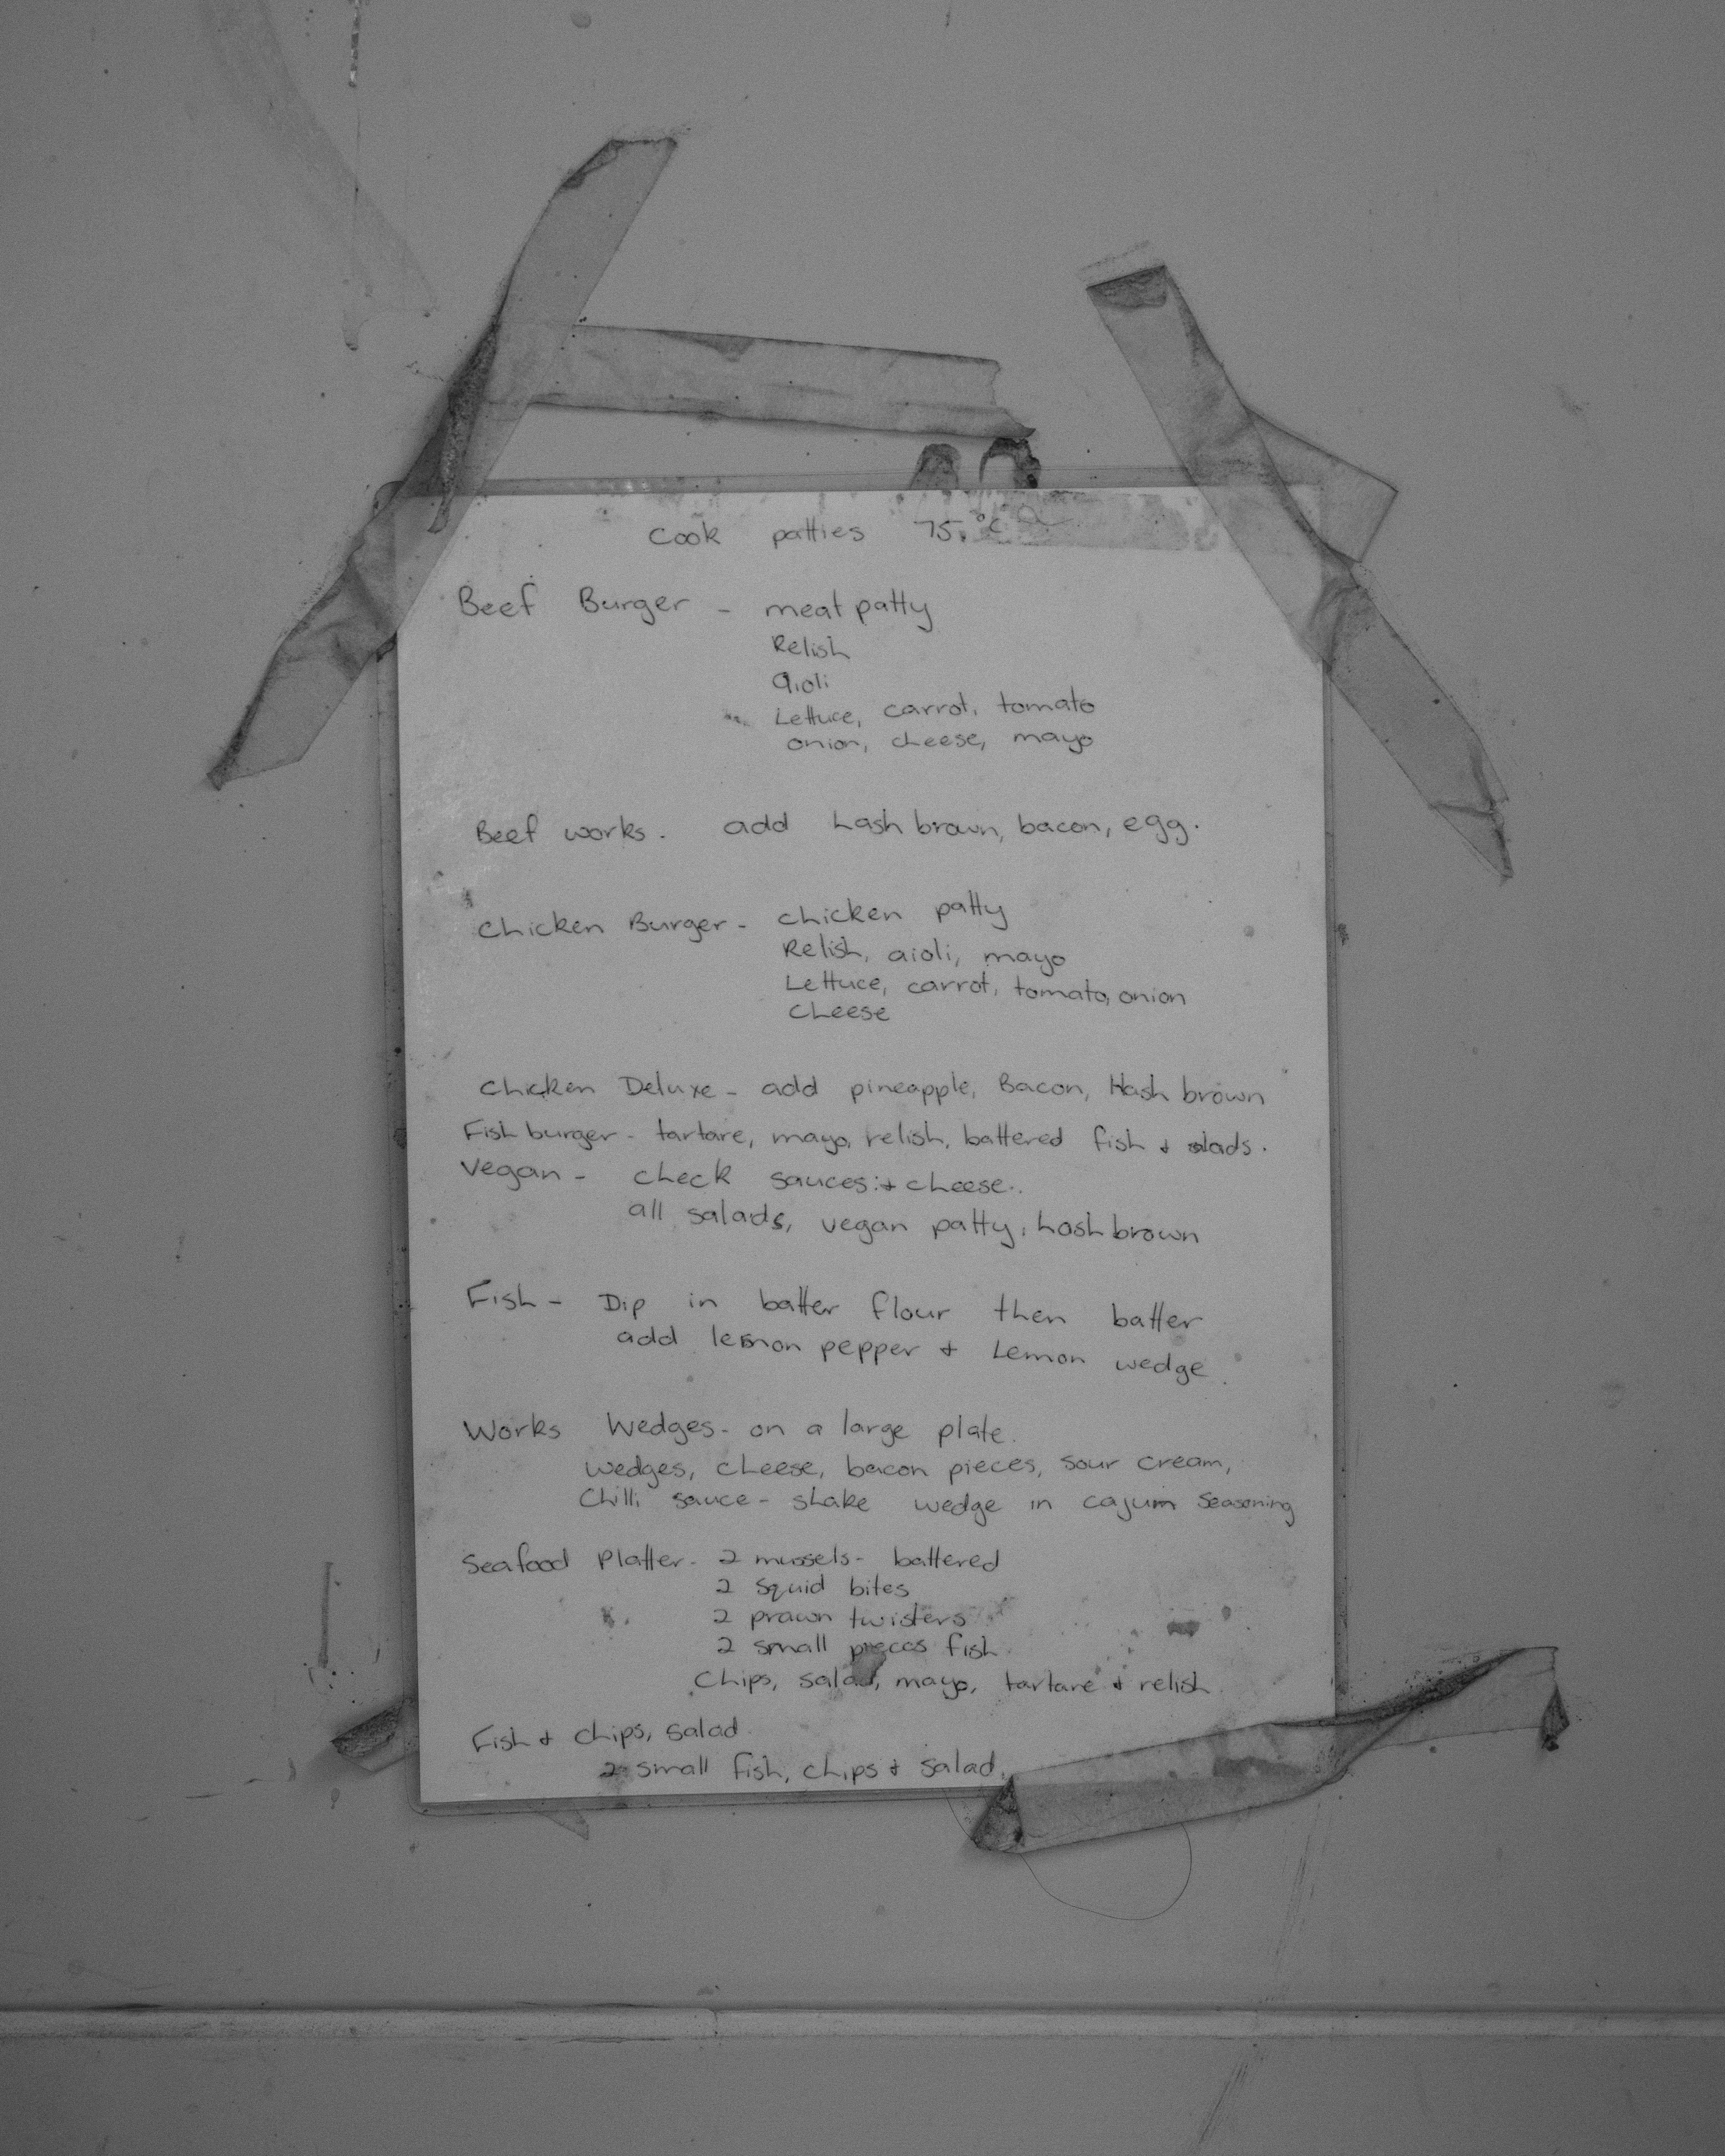 Cook patties 75°C
Beef Burger - meat patty
Relish
aioli
Lettuce, carrot, tomato
onion, cheese, mayo
Beef works. add hash brown, bacon, egg.
Chicken Burger - chicken patty
Relish, aioli, mayo
Lettuce, carrot, tomato, onion
cheese
Chicken Deluxe - add pineapple, Bacon, Hash brown
Fish burger - tartare, mayo, relish, battered fish + salads.
Vegan - check sauces + cheese.
all salads, vegan patty, hash brown
Fish - Dip in batter flour then batter
add lemon pepper + Lemon wedge
Works Wedges - on a large plate.
wedges, cheese, bacon pieces, sour cream,
Chilli sauce - shake wedge in cajum seasoning
Seafood Platter - 2 mussels - battered
2 squid bites
2 prawn twisters
2 small pieces fish
Chips, salad, mayo, tartare + relish
Fish + chips, salad
2 small fish, chips + salad.